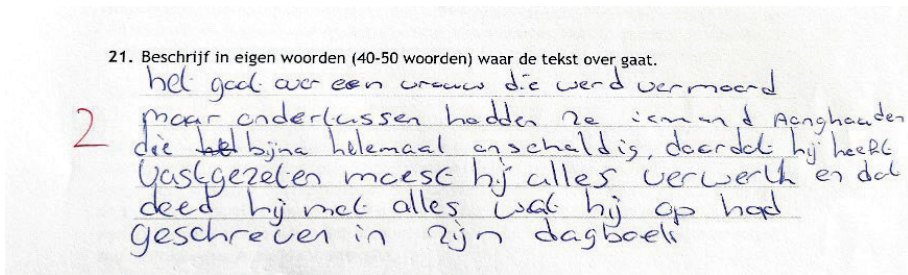 21. Beschrijf in eigen woorden (40-50 woorden) waar de tekst over gaat.
het gaat over een vrouw die werd vermoord
2 maar ondertussen hadden ze iemand Aanghouden
die bijna helemaal onschaldig, doordat hij heeft
Vastgezeten moest hij alles verwerk en dat
deed hij met alles wat hij op had
geschreven in zijn dagboek